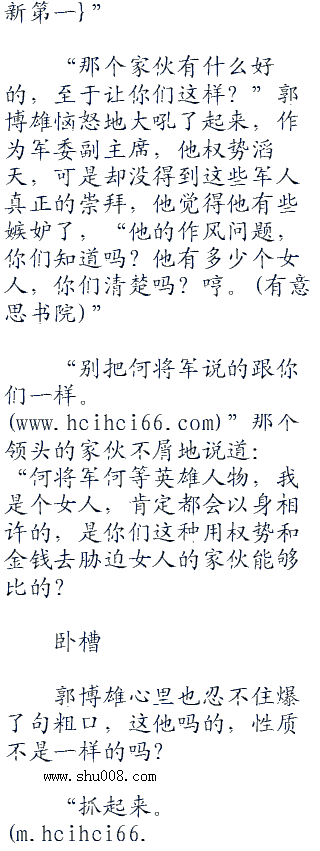 新第一}”
“那个家伙有什么好
的，至于让你们这样？”郭
博雄恼怒地大吼了起来，作
为军委副主席，他权势滔
天，可是却没得到这些军人
真正的崇拜，他觉得他有些
嫉妒了，“他的作风问题，
你们知道吗？他有多少个女
人，你们清楚吗？哼。(有意
思书院)”
“别把何将军说的跟你
们一样。
(www.hcihci66.com)”那个
领头的家伙不屑地说道：
“何将军何等英雄人物，我
是个女人，肯定都会以身相
许的，是你们这种用权势和
金钱去胁迫女人的家伙能够
比的？
卧槽
郭博雄心里也忍不住爆
了句粗口，这他吗的，性质
不是一样的吗？
www.shu008.com
“抓起来。
(m.hcihci66.